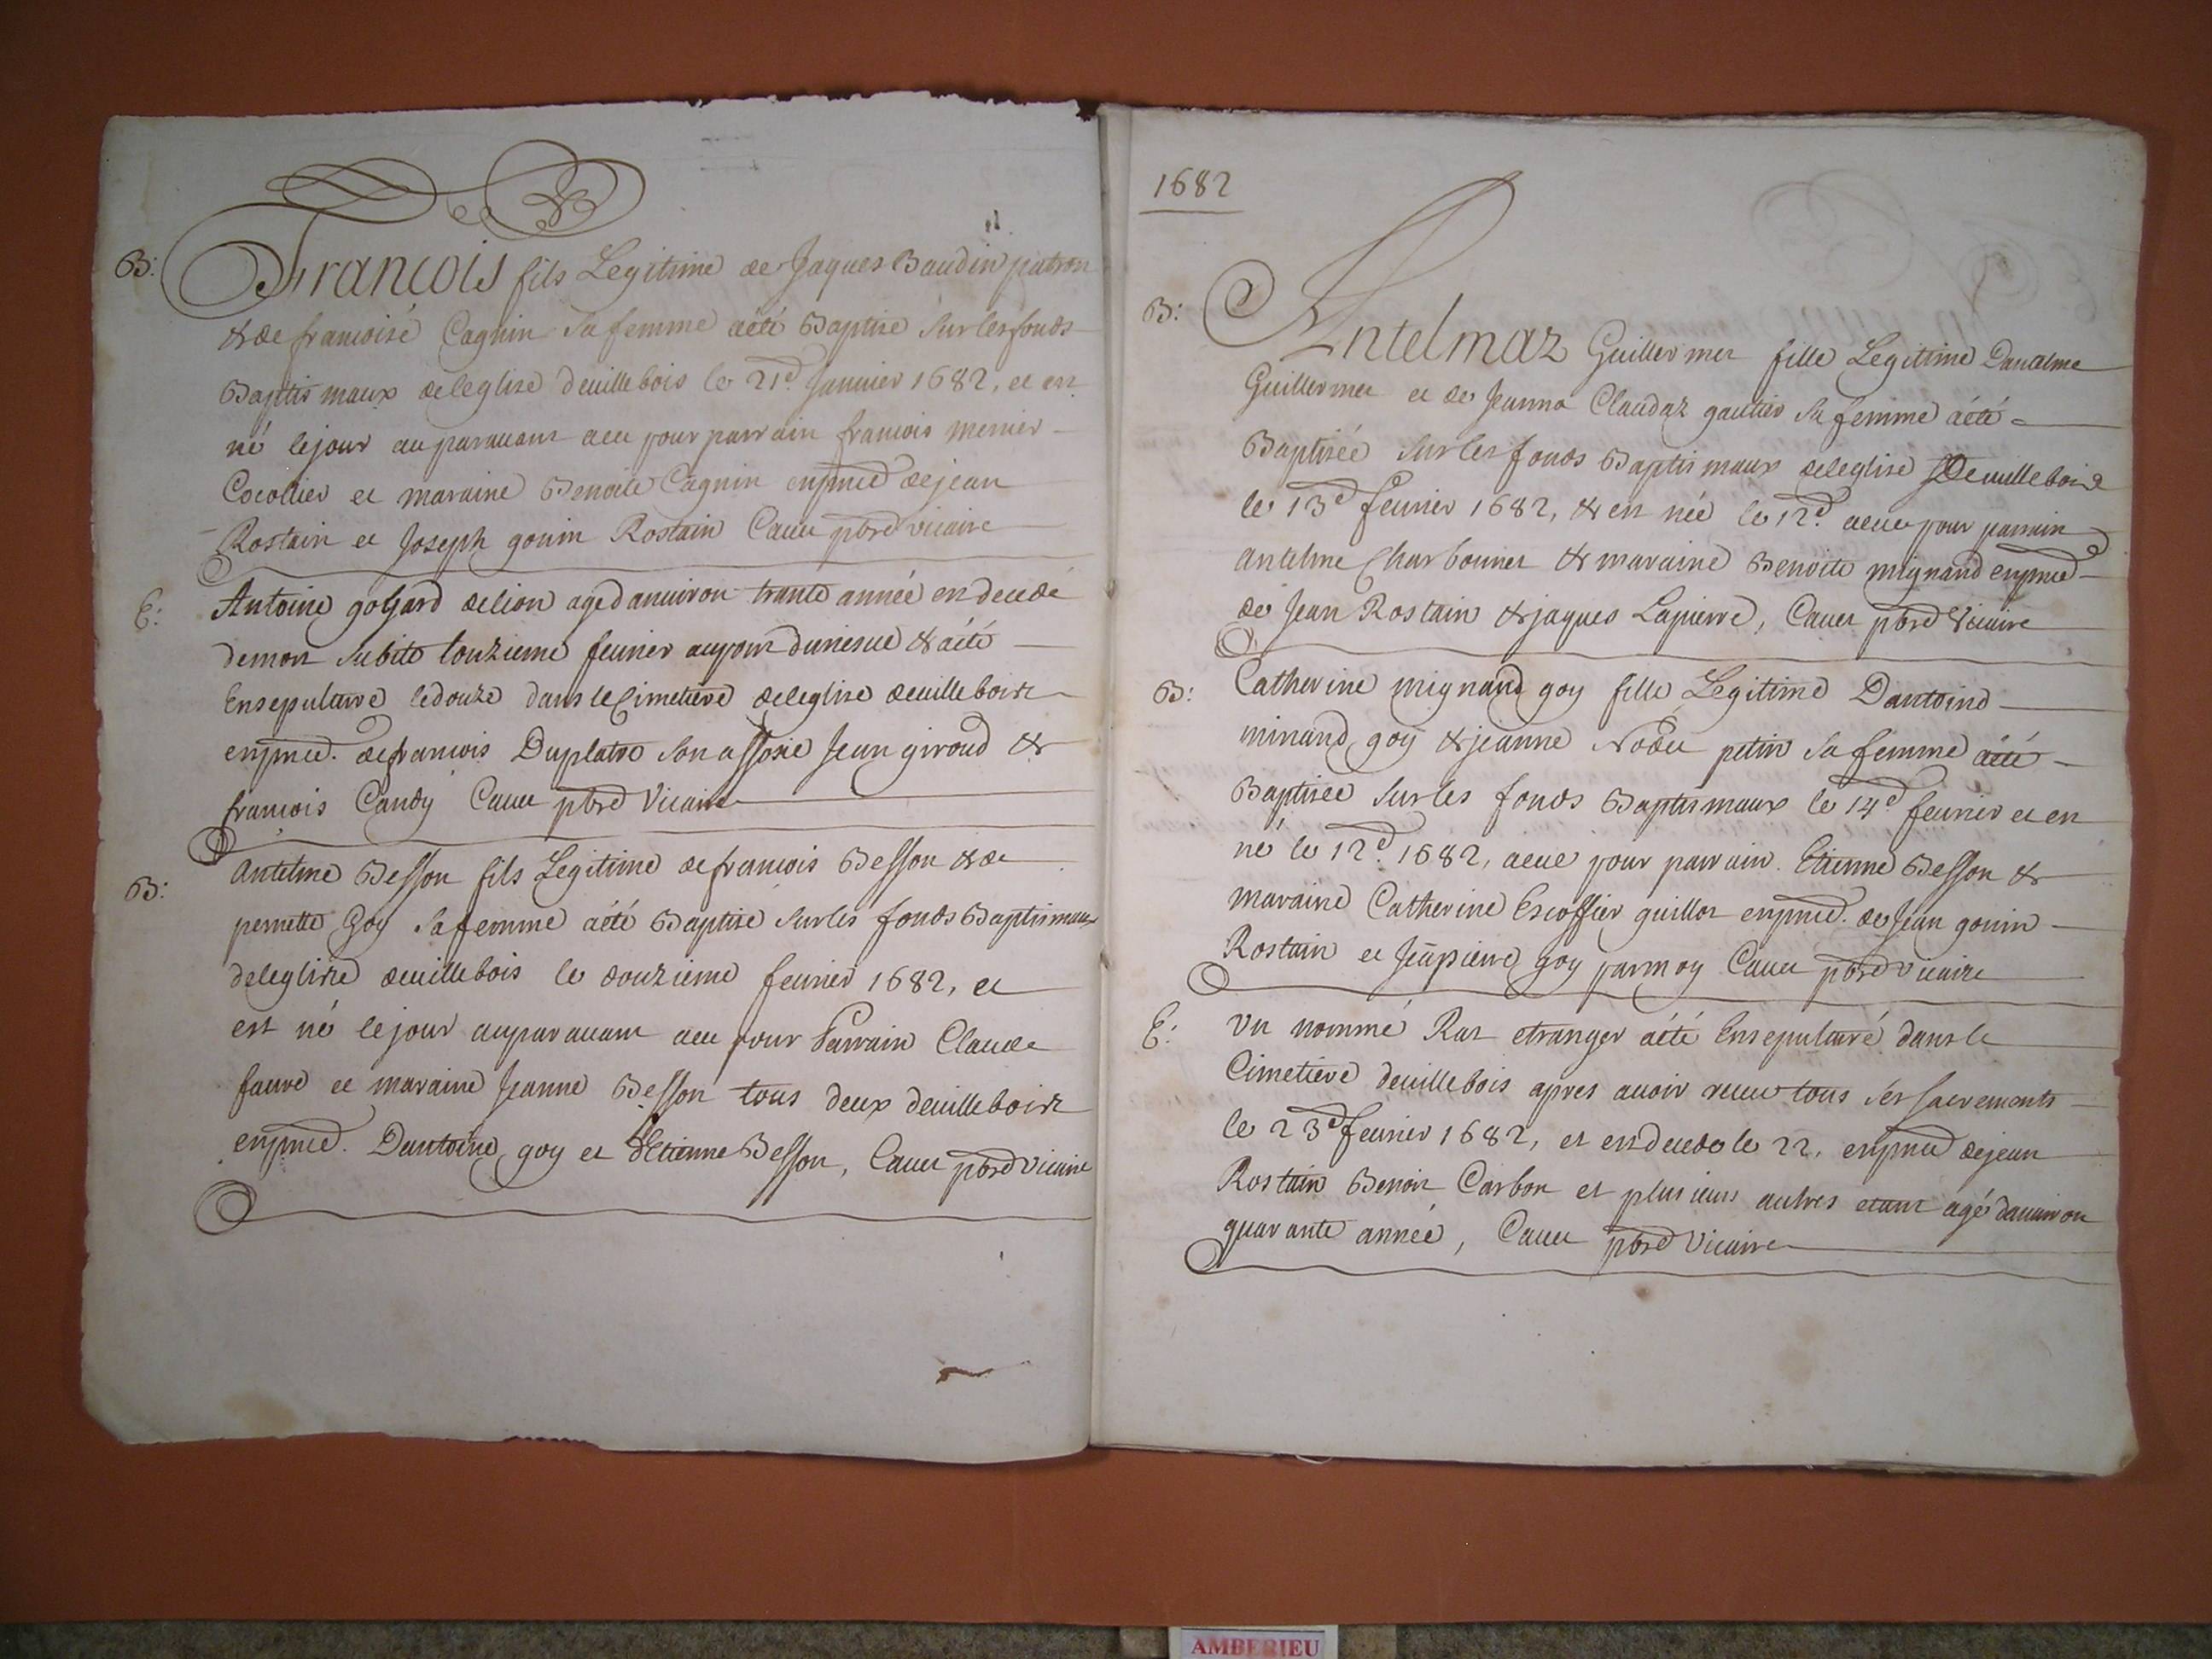 B:
François fils Legitime de Jaques Baudin patron
& de francoise Cagnin sa femme aété Baptisé sur les fonds
Baptismaux deleglise deuillebois le 21d Januier 1682, et est
né lejour auparauant aeu pour parrain francois mernier
Cocollier et maraine Benoite Cagnin enpnce dejean
Rostain et Joseph gonin Rostain Cauet pbre vicaire
E:
Antoine golyard delion agé danuiron trante année est decedé
demort subite lonzieme feurier aupont dunesue & aété
Ensepulturé ledouze dans le Cimetiere deleglise deuillebois
enpnce. defrancois Duplatre son assosié Jean giroud &
francois Candy Cauet pbre Vicaire
B:
Antelme Besson fils Legitime defrancois Besson & de
pernette Goy sa femme aété Baptisé sur les fonds Baptismaux
deleglise deuillebois le douzieme feurier 1682, et
est né lejour auparauant aeu pour Parrain Claude
faure et maraine Jeanne Besson tous deux deuillebois
enpnce. Dantoine goy et dEtienne Besson, Cauet pbre vicaire
1682
B:
Antelmaz Guillermet fille Legitime Danthelme
Guillermet et de Jeanne Claudaz gautier sa femme aété
Baptisée sur les fonds Baptismaux deleglise Deuillebois
le 13d feurier 1682, & est née le 12d. aeue pour parrain
antelme Charbonnet & maraine Benoite mignand enpnce
de Jean Rostain & jaques Lapierre, Cauet pbre Vicaire
B:
Catherine mignand goy fille Legitime Dantoine
minand goy & jeanne Nodet petin sa femme aété
Baptisée sur les fonds Baptismaux le 14d feurier et est
né le 12d. 1682, aeue pour parrain Etienne Besson &
maraine Catherine Escoffier guillot enpnce. de Jean gonin
Rostain et Jeãpierre goy parmoy Cauet pbre vicaire
E:
Un nommé Rat etranger aété Ensepulturé dans le
Cimetiere deuillebois apres auoir receu tous ses sacrements
le 23d feurier 1682, et est decedé le 22. enpnce dejean
Rostain Benoit Carbon et plusieurs autres etant agé danuiron
quarante année, Cauet pbre Vicaire
AMBERIEU